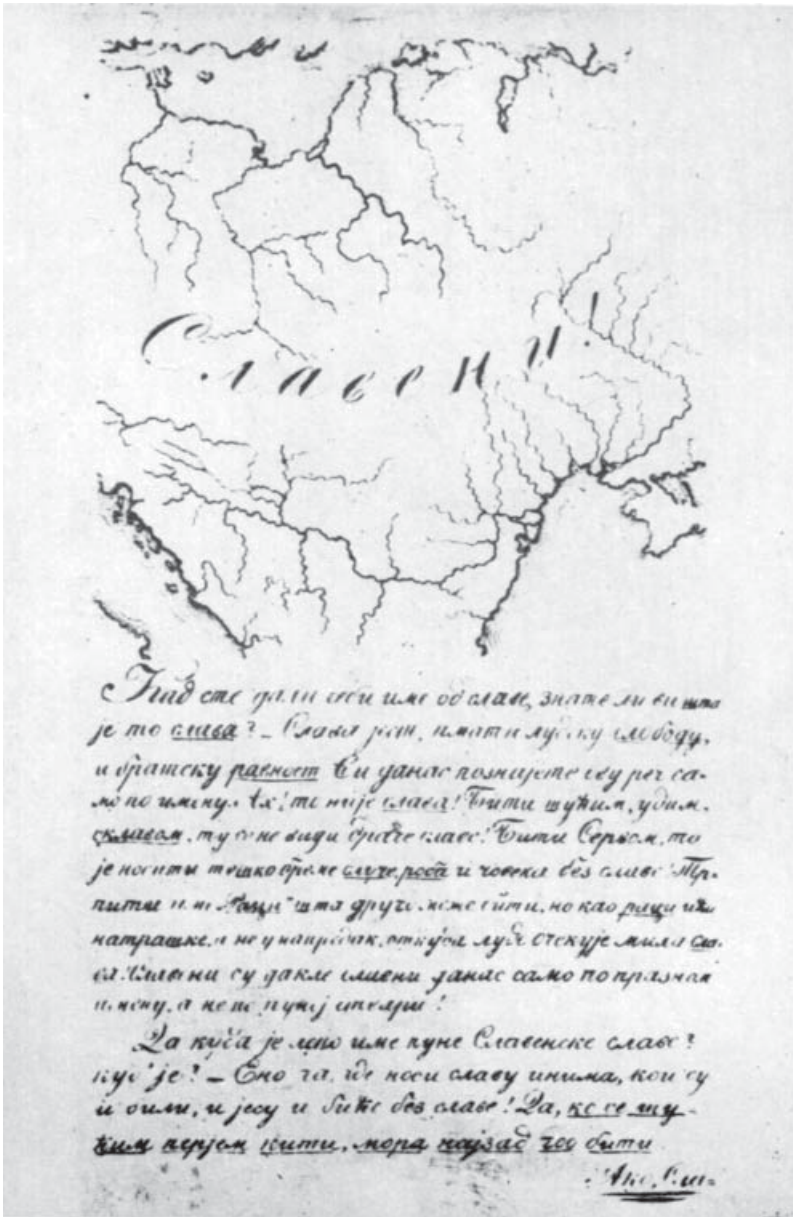 Славени!
Кад сте дали себи име од славе, знате ли ви шта
је то слава? — Слава јест, имати људску слободу,
и братску равност Ви данас познијете ову реч са-
мо по имену. Ах! то није слава! Бити туђим, удим,
склавом, ту се не види браће славе! Бити Сербом, то
је носити тешко бреме слуге, роба и човека без славе Тр-
пити име шта друго може бити, но као раци ићи
натрашке, а не у напредак, откуда људи очекује мила сла-
ва. Славени су дакле славни данас само по празном
имену, а не по пуној ствари!
Да куд'а је лепо име пуне Славенске славе?
куд' је? — Ено га, где носи славу инима, кои су
и били, и јесу и биће без славе! Да, ко се ту-
ђим перјем кити, мора најзад го бити